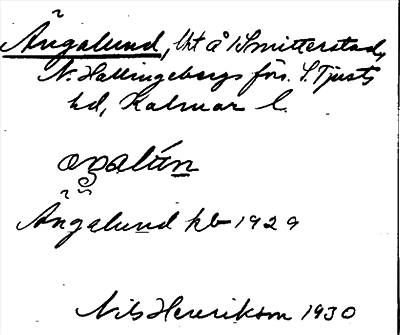 Ängalund, lht å Smitterstad,
N. Hallingebergs förs. S. Tjusts
hd, Kalmar l.
Ängalund kb 1929
Nils Henrikson 1930